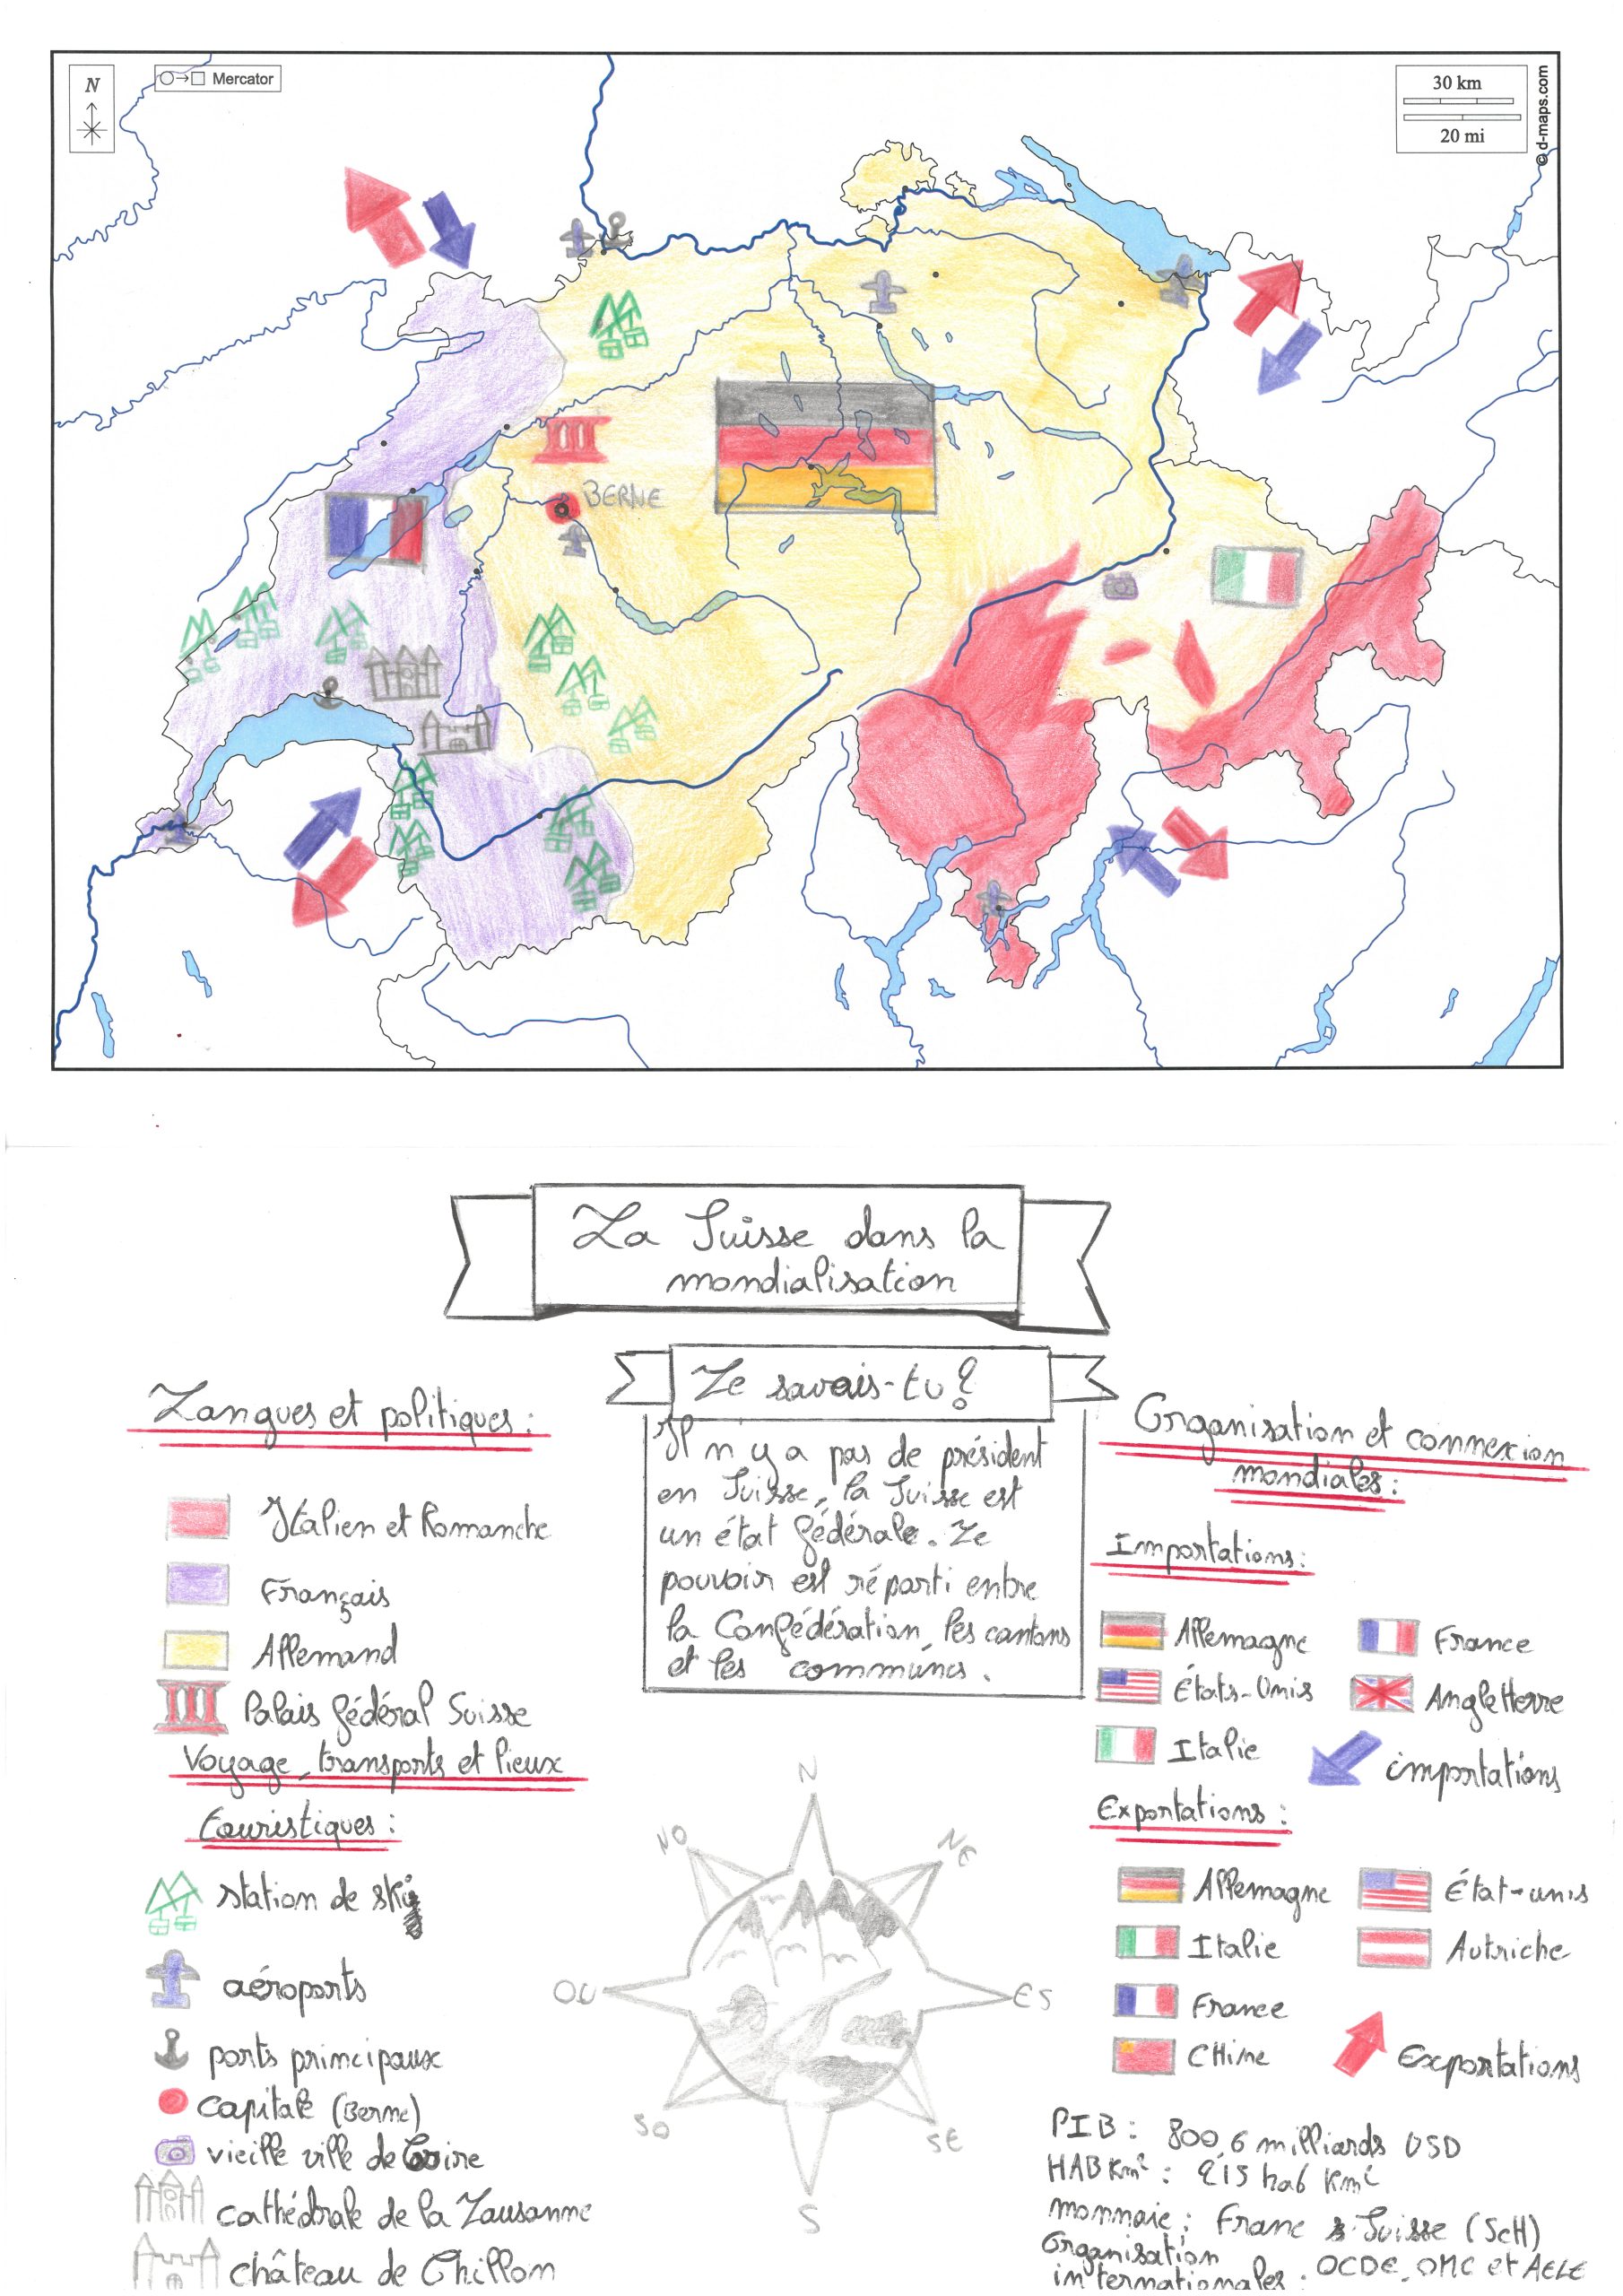 N
Mercator
30 km
20 mi
© d-maps.com
BERNE
La Suisse dans la
mondialisation
Le savais-tu ?
Il n'y a pas de président
en Suisse, la Suisse est
un état fédérale. Le
pouvoir est réparti entre
la Confédération, les cantons
et les communes.
Langues et politiques :
Italien et Romanche
Français
Allemand
Palais fédéral Suisse
Voyage, transports et lieux
touristiques :
station de ski
aéroports
ports principaux
capitale (Berne)
vieille ville de Coire
cathédrale de la Lausanne
château de Chillon
N
NO
NE
OU
ES
SO
SE
S
Organisation et connexion
mondiales :
Importations :
Allemagne
France
États-Unis
Angleterre
Italie
importations
Exportations :
Allemagne
État-unis
Italie
Autriche
France
CHine
Exportations
PIB : 800,6 milliards USD
HAB Km² : 215 hab Km²
monnaie : Franc Suisse (ScH)
Organisation
internationales : OCDE, OMC et AELE